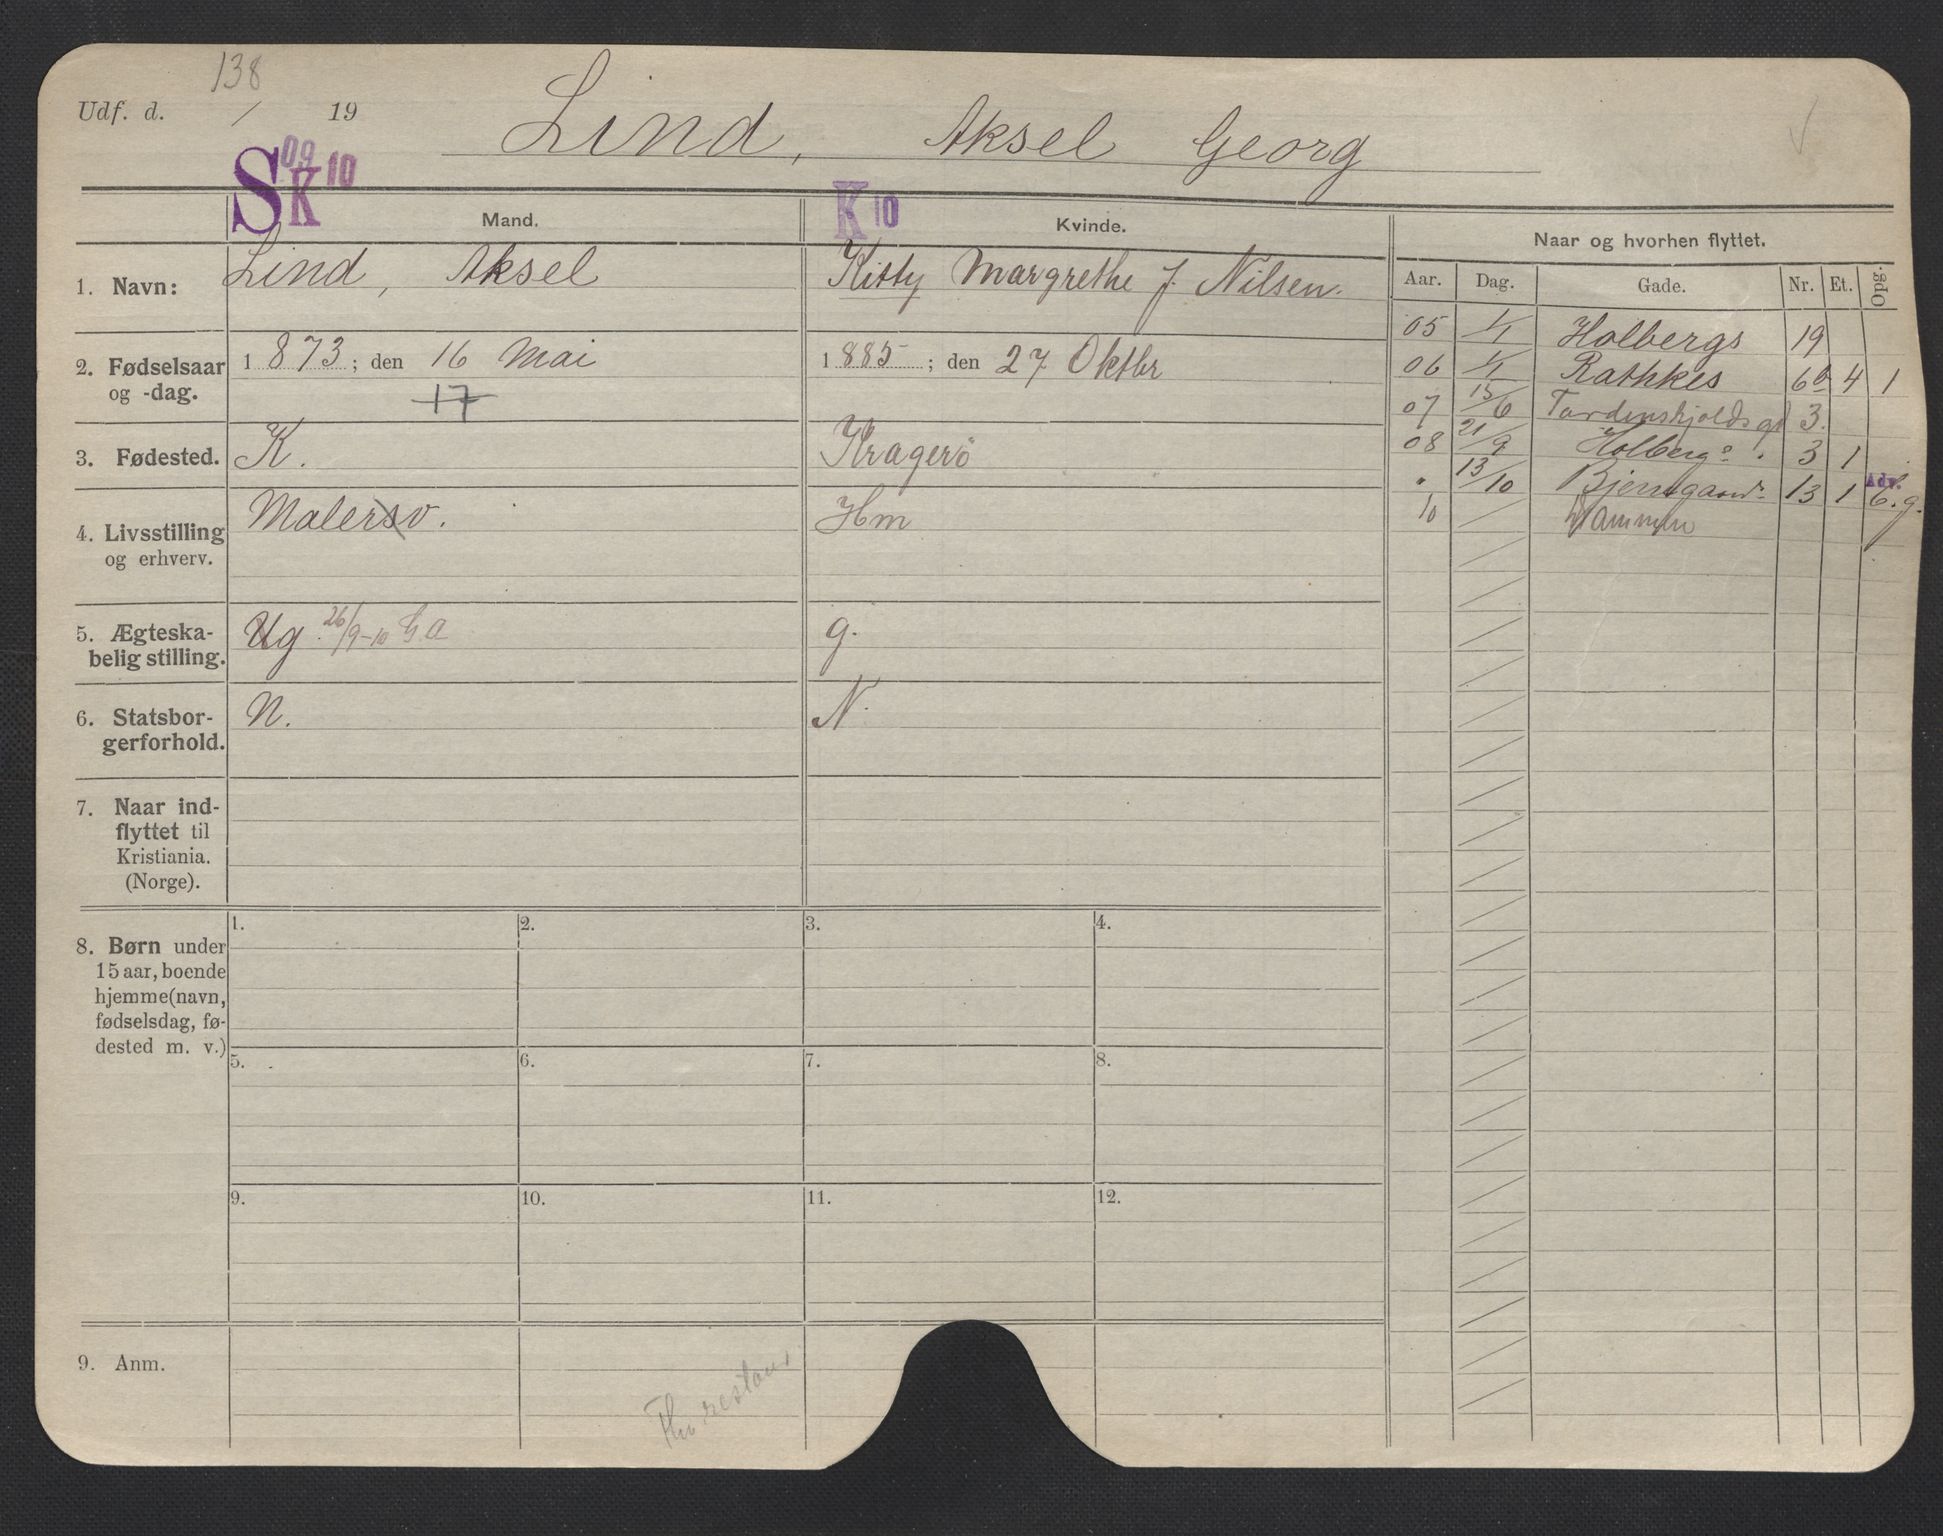 138
Udf. d. / 19
Lind, Aksel Georg
S 09 K 10
K 10
Mand.
Kvinde.
Naar og hvorhen flyttet.
Aar. Dag. Gade. Nr. Et. Opg.
1. Navn: Lind, Aksel
Kitty Margrethe f. Nilsen.
2. Fødselsaar og -dag. 1873; den 16 Mai
17
1885; den 27 Oktbr
3. Fødested. K.
Kragerö
4. Livsstilling og erhverv. Malersv.
Hm
5. Ægteska-
belig stilling. Ug. 26/9-10 G.A
g.
6. Statsbor-
gerforhold. N.
N.
7. Naar ind-
flyttet til
Kristiania.
(Norge).
8. Børn under
15 aar, boende
hjemme (navn,
fødselsdag, fø-
dested m. v.)
1. 2. 3. 4.
5. 6. 7. 8.
9. 10. 11. 12.
9. Anm.
05 1/1 Holbergs 19
06 1/1 Rathkes 6b 4 1
07 15/6 Tordenskjolds gt 3.
08 21/9 Holbergs 3 1
" 13/10 Bjerregaards 13 1 Adv.
10 / Drammen